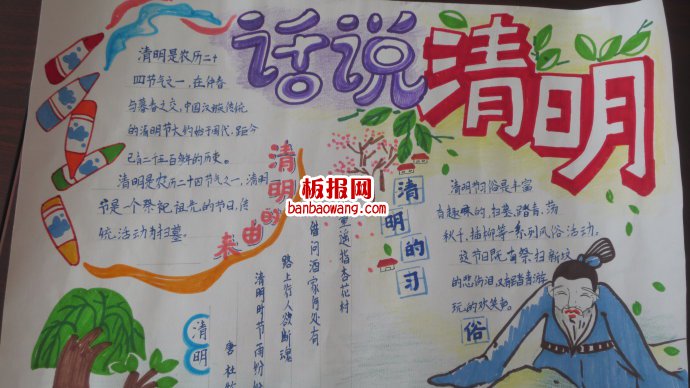 话说清明
清明是农历二十
四节气之一,在仲春
与暮春之交,中国汉族传统
的清明节大约始于周代,距今
已有二千五百多年的历史。
清明是农历二十四节气之一,清明
节是一个祭祀祖先的节日,传
统活动为扫墓。
清明的来由
板报网
banbaowang.com
清明
唐 杜牧
清明时节雨纷纷
路上行人欲断魂
借问酒家何处有
童遥指杏花村
清明的习俗
清明节习俗是丰富
有趣的,扫墓、踏青、荡
秋千、插柳等一系列风俗活动。
这节日既有祭扫新坟
的悲伤泪,又有踏青游
玩的欢笑声。